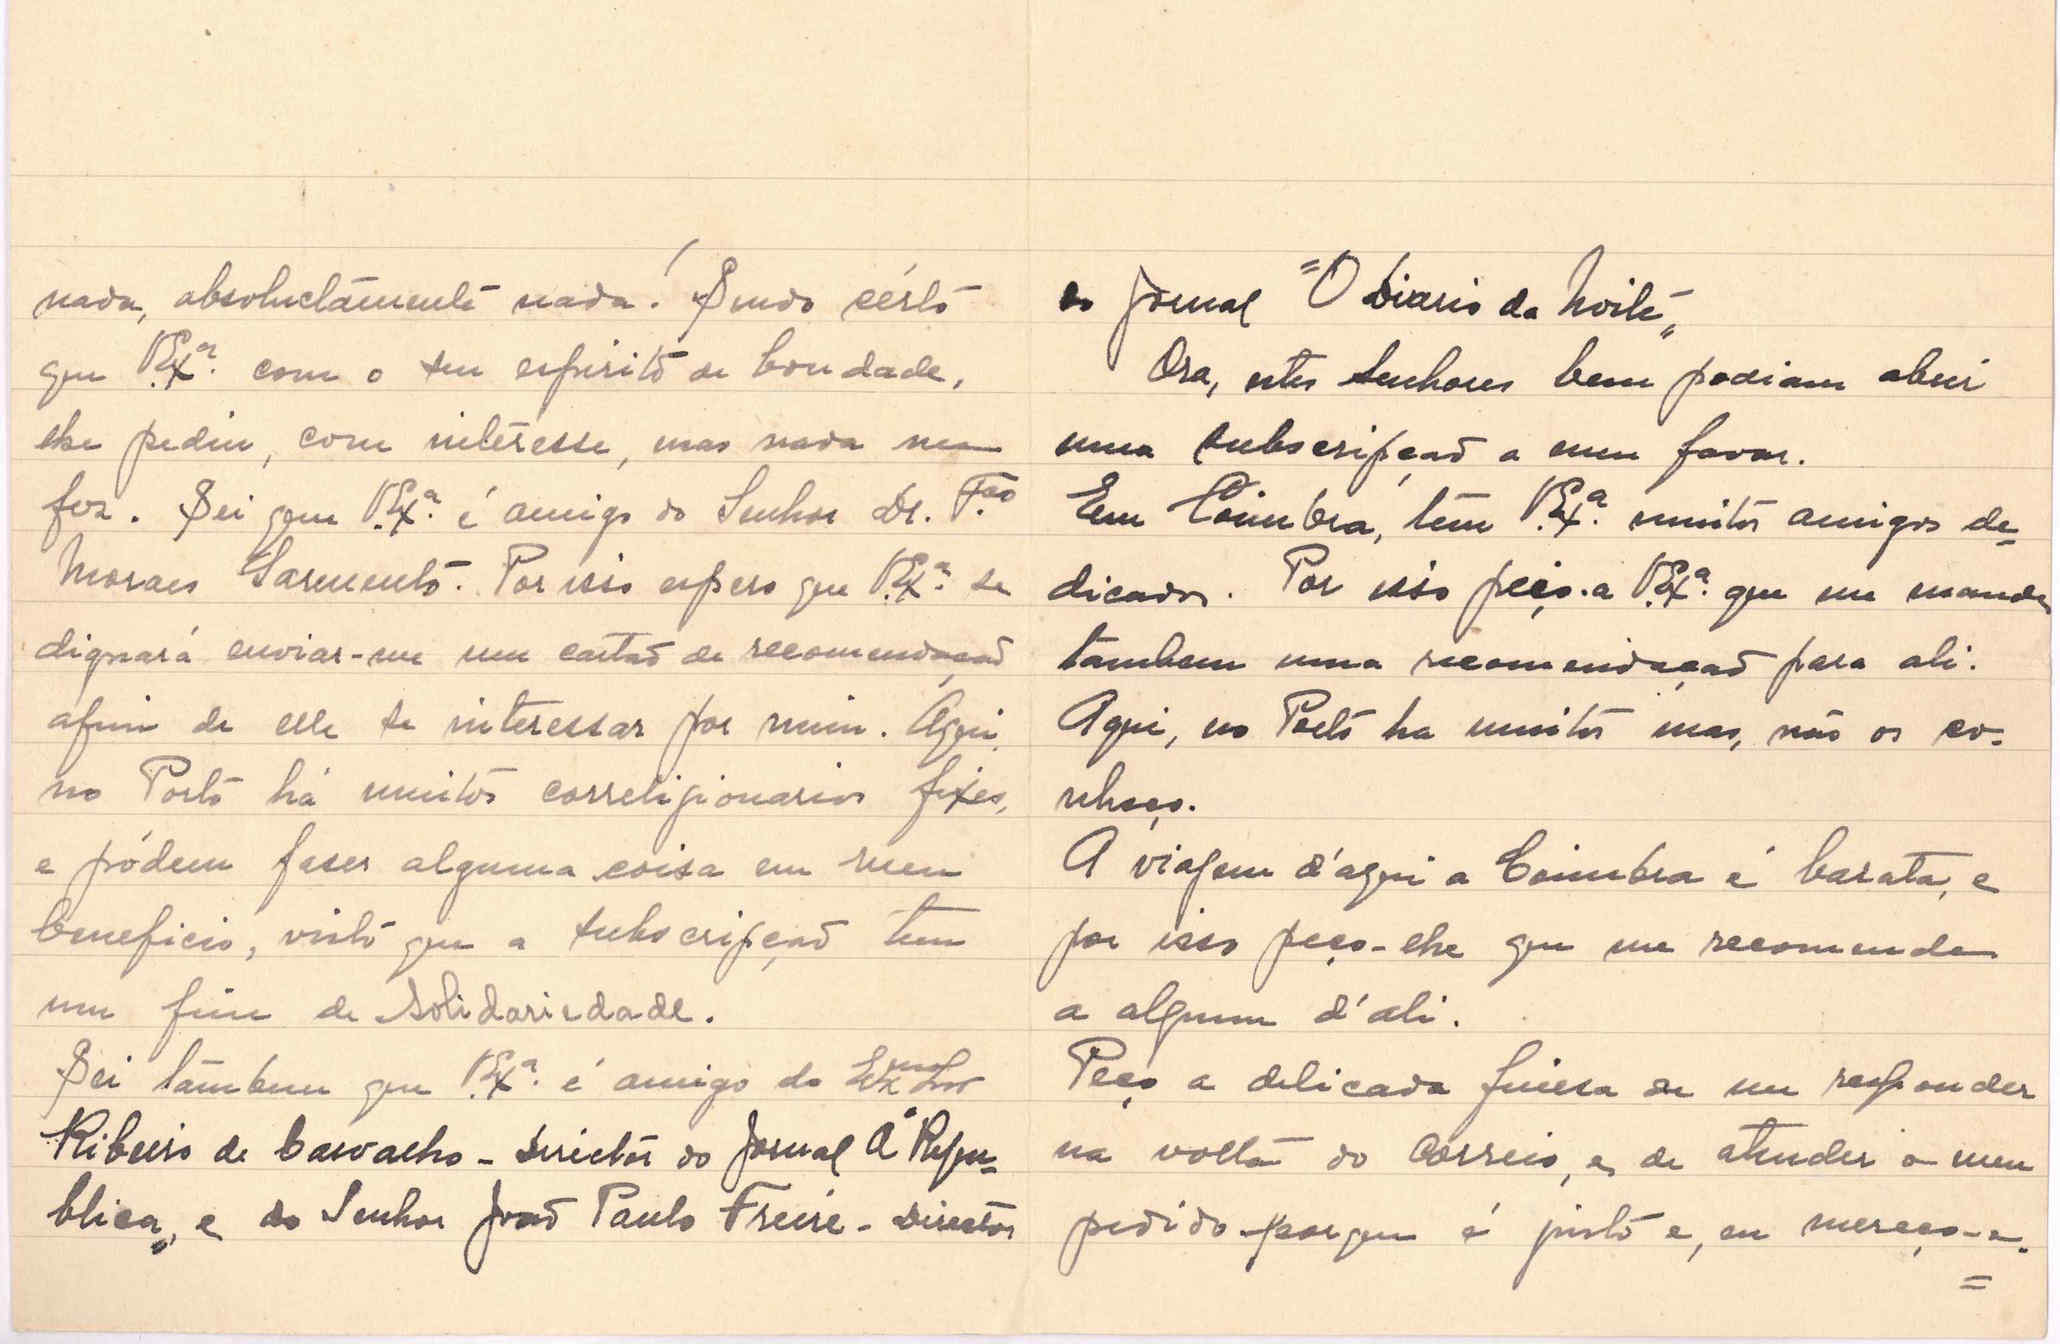 nada, absoluctamente nada! Sendo cérto
que V.Exª. com o seu espirito de bondade,
lhe pediu, com interesse, mas nada me
fez. Sei que V.Exª. é amigo do Senhor Dr. F.co
Moraes Sarmento. Por isso espero que V.Exª. se
dignará enviar-me um cartaõ de recomendaçaõ
afim de elle se interessar por mim. Aqui,
no Porto há muitos correligionarios fixes,
e pódem faser alguma coisa em meu
beneficio, visto que a subscripçaõ tem
um fim de Solidariedade.
Sei tambem que V.Exª. é amigo do Exmo Snr
Ribeiro de Carvalho - Director do Jornal "A Repu-
blica„, e do Senhor Joaõ Paulo Freire - Director
do Jornal "O Diario da Noite„
Ora, estes Senhores bem podiam abrir
uma subscripçaõ a meu favor.
Em Coimbra, tem V.Exª. muitos amigos de-
dicados. Por isso peço-a V.Exª. que me mande
tambem uma recomendaçaõ para ali.
Aqui, no Porto ha muitos mas, não os co-
nheço.
A viajem d'aqui a Coimbra é barata, e
por isso peço-lhe que me recomende
a algum d'ali.
Peço a delicada finesa de me responder
na volta do Correio, e, de atender o meu
pedido porque é justo e, eu mereço-o.
=